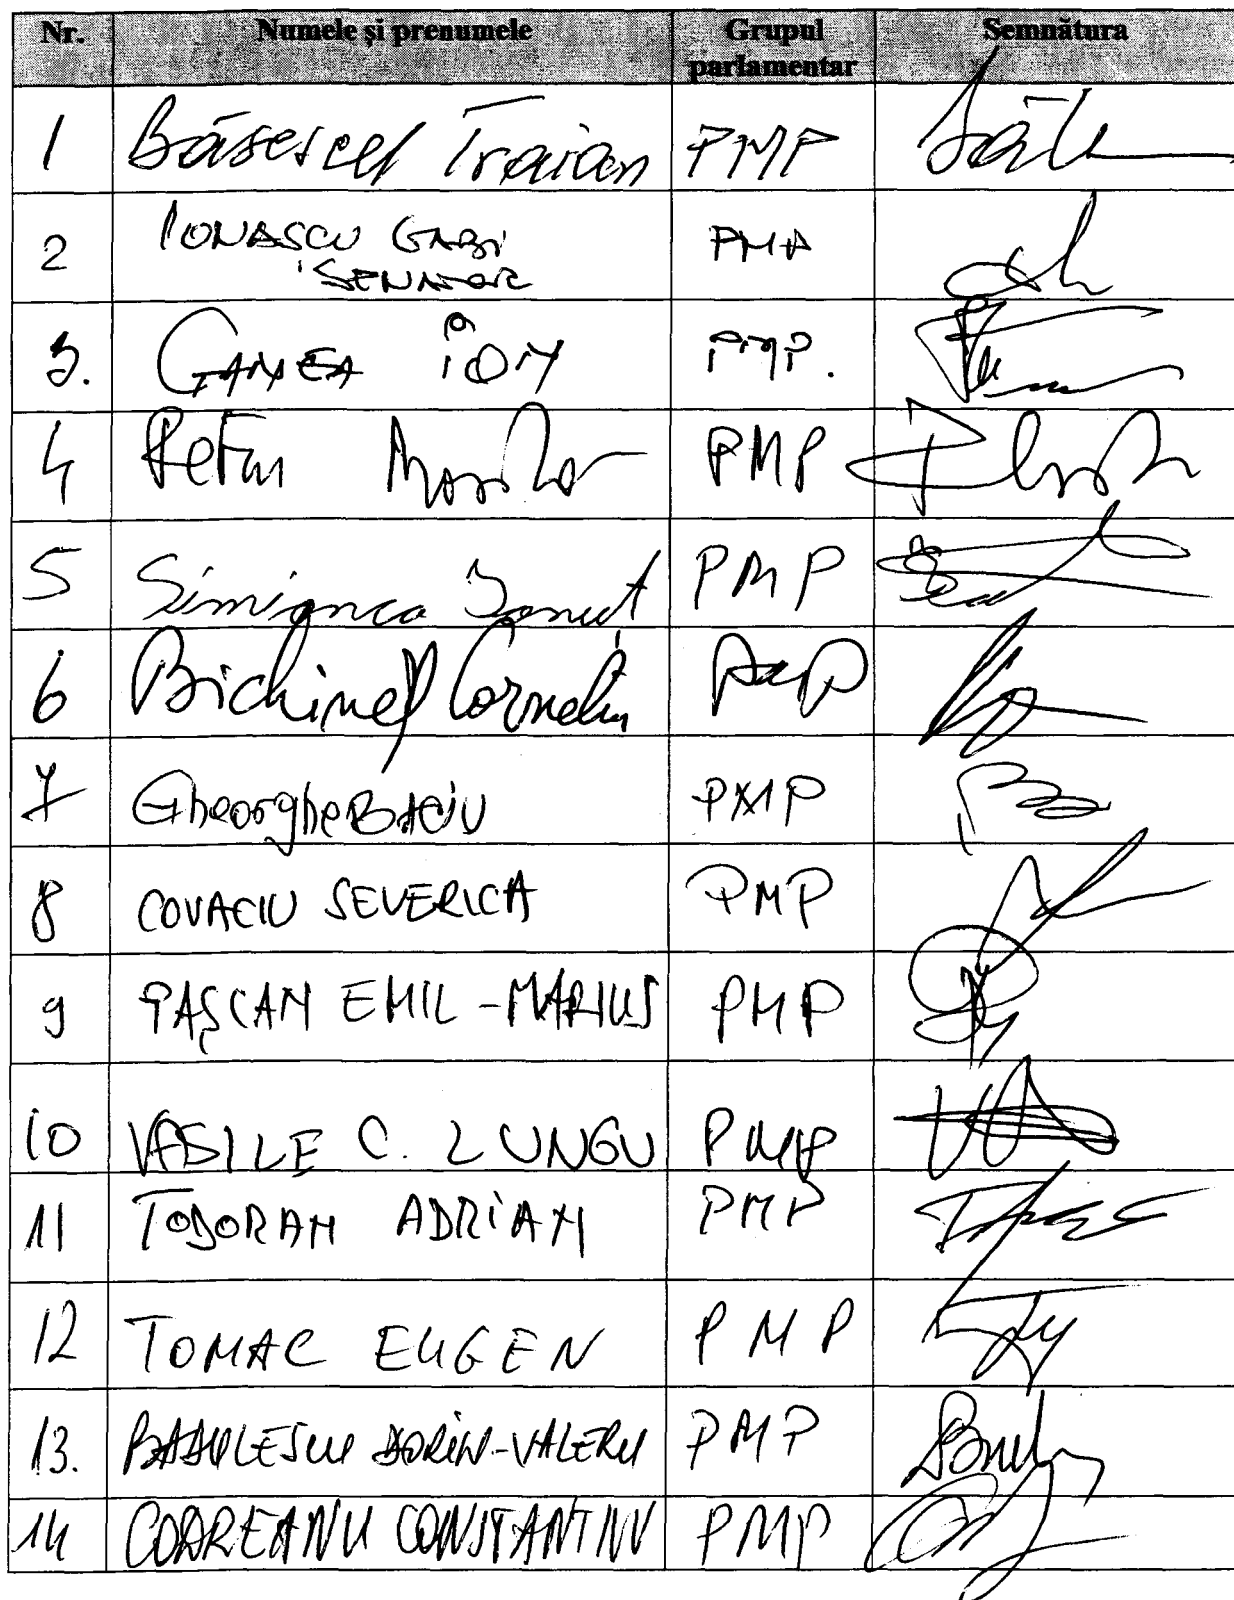 Nr. Numele și prenumele Grupul parlamentar Semnătura
1 Băsescu Traian PMP
2 IONAȘCU GABI PMP
SENATOR
3. GANEA ION PMP.
4 PMP
5 Simionca Ionuț PMP
6 Bichineț Corneliu PMP
7 Gheorghe BACIU PMP
8 COVACIU SEVERICA PMP
9 PAȘCAN EMIL-MARIUS PMP
10 VASILE C. LUNGU PMP
11 TODORAN ADRIAN PMP
12 TOMAC EUGEN PMP
13. BĂDULESCU DORIN-VALERIU PMP
14 CODREANU CONSTANTIN PMP